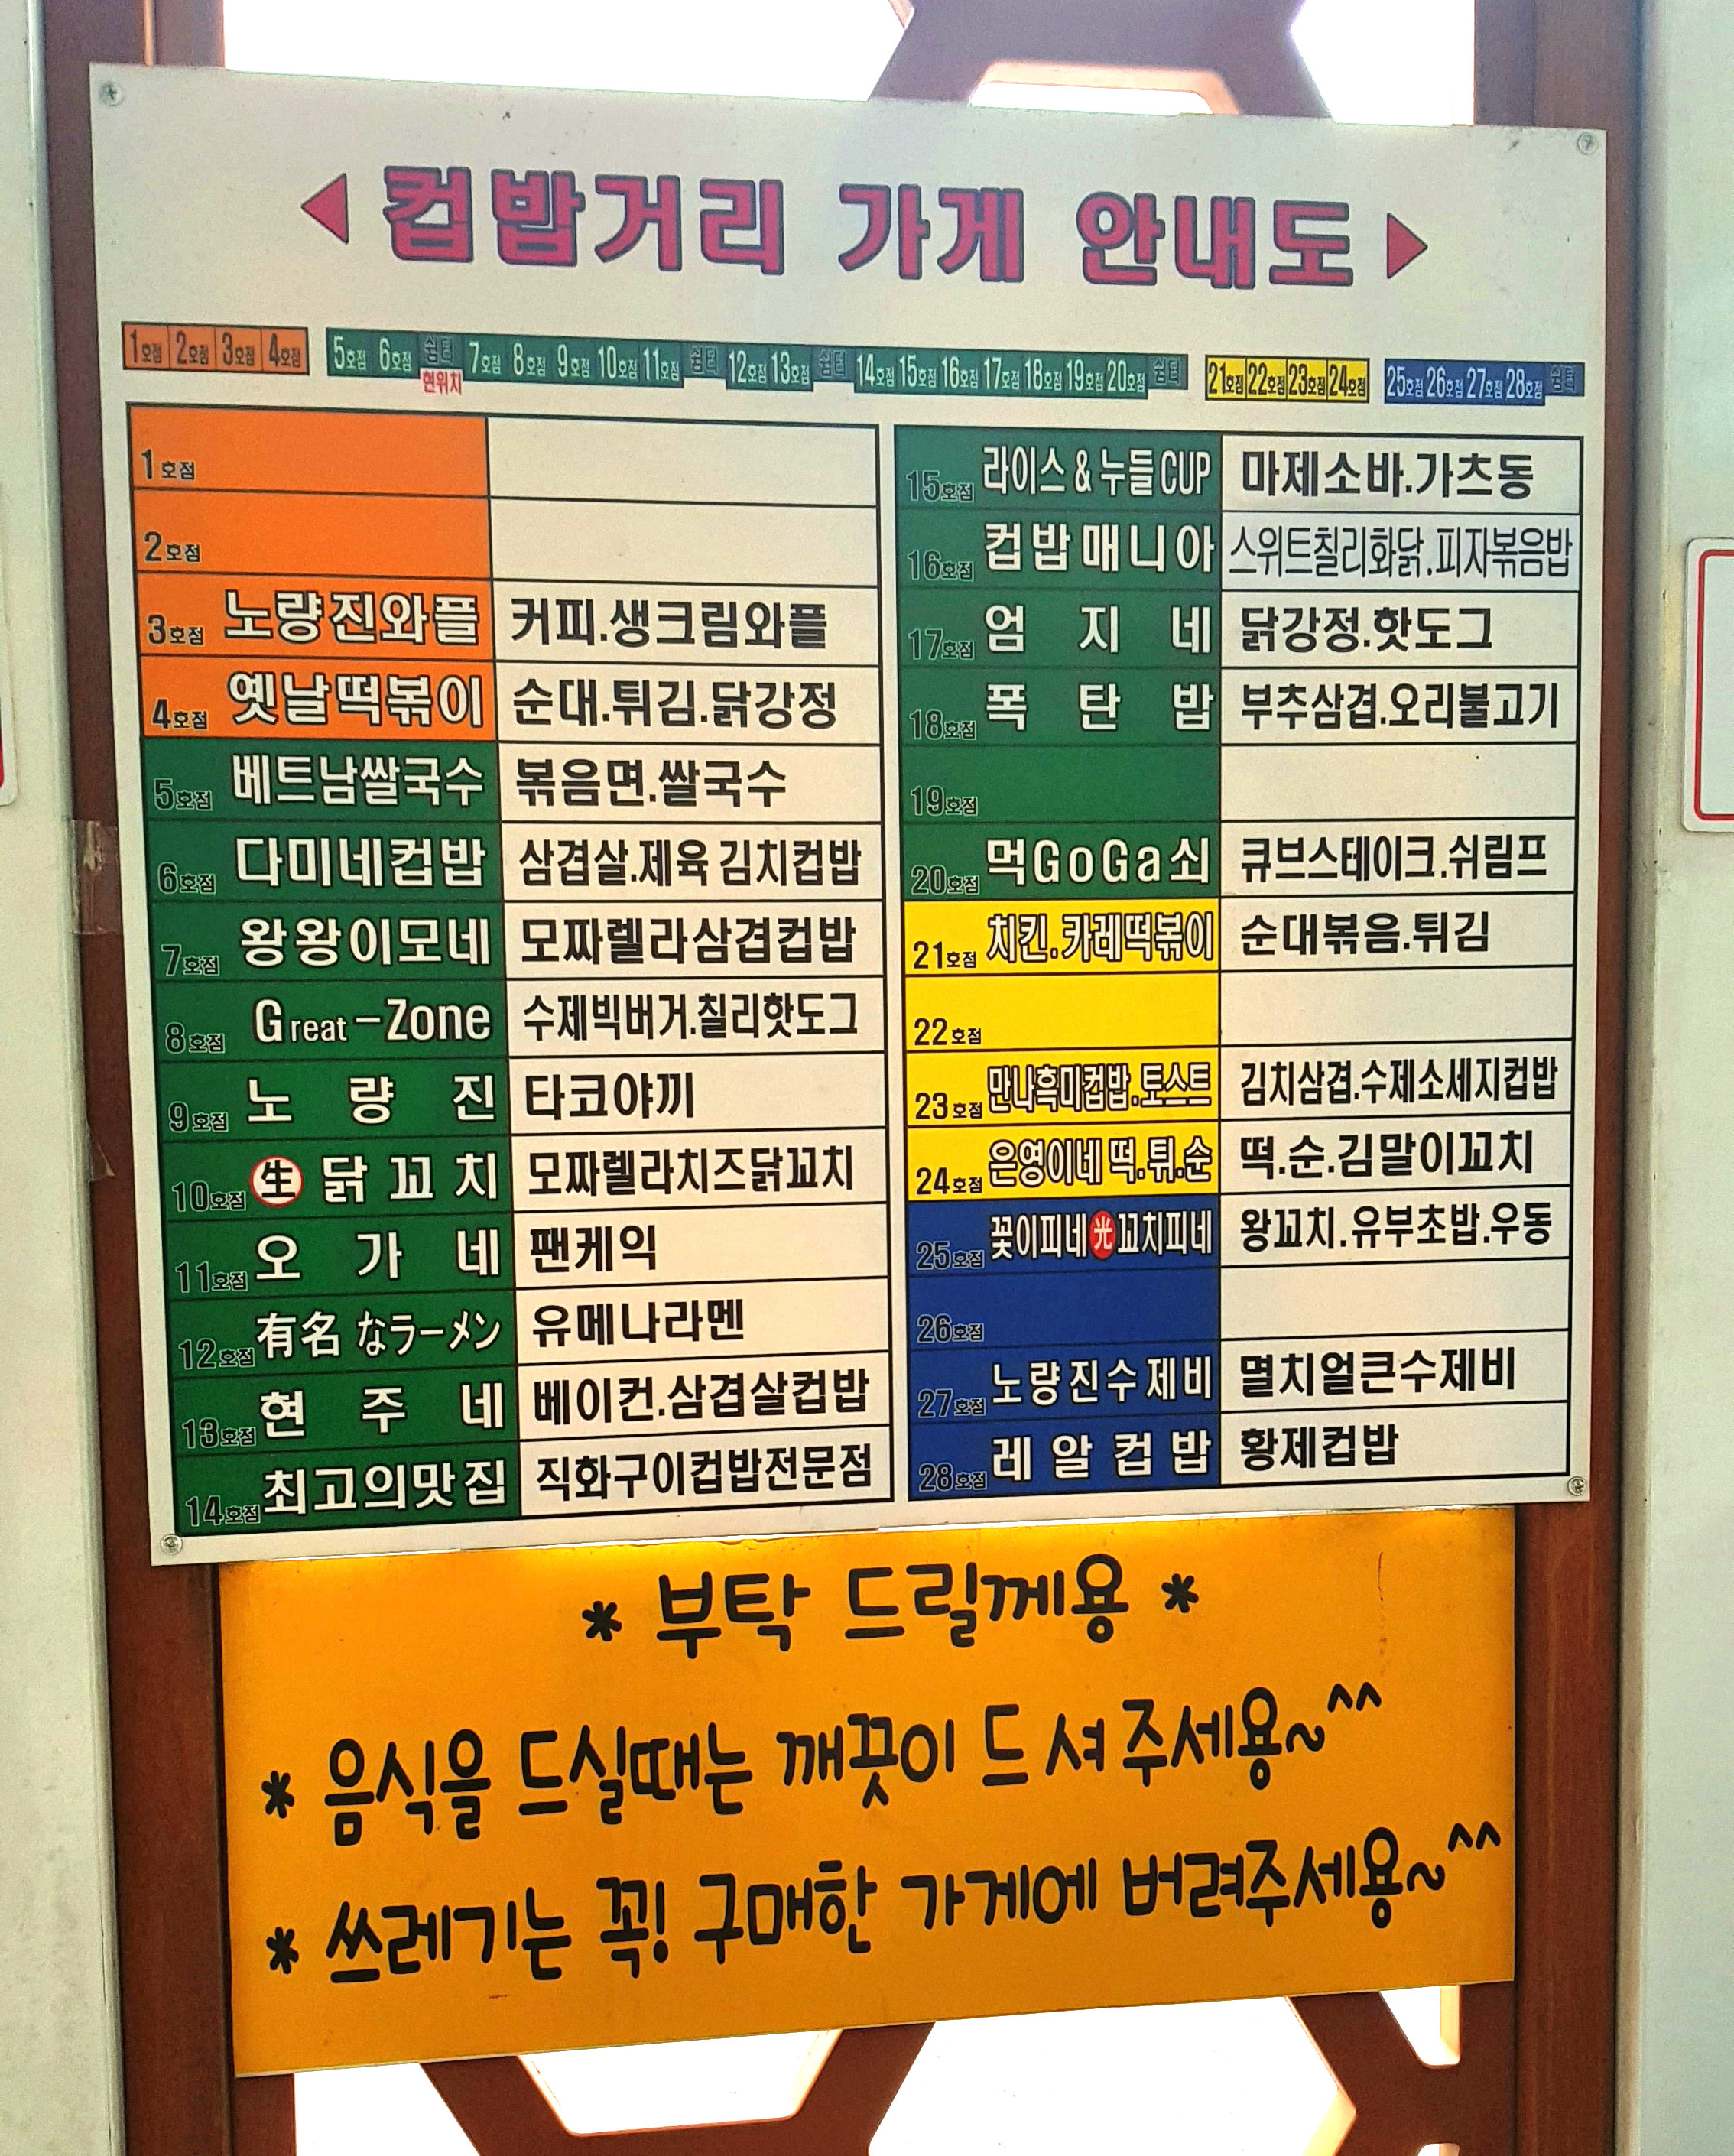 컵밥거리 가게 안내도
1호점 2호점 3호점 4호점 5호점 6호점 쉼터 7호점 8호점 9호점 10호점 11호점 쉼터 12호점 13호점 쉼터 14호점 15호점 16호점 17호점 18호점 19호점 20호점 쉼터 21호점 22호점 23호점 24호점 25호점 26호점 27호점 28호점 쉼터
현위치
1호점
2호점
3호점 노량진와플 커피.생크림와플
4호점 옛날떡볶이 순대.튀김.닭강정
5호점 베트남쌀국수 볶음면.쌀국수
6호점 다미네컵밥 삼겹살.제육 김치컵밥
7호점 왕왕이모네 모짜렐라삼겹컵밥
8호점 Great-Zone 수제빅버거.칠리핫도그
9호점 노량진 타코야끼
10호점 生 닭꼬치 모짜렐라치즈닭꼬치
11호점 오가네 팬케익
12호점 有名 なラーメン 유메나라멘
13호점 현주네 베이컨.삼겹살컵밥
14호점 최고의맛집 직화구이컵밥전문점
15호점 라이스 & 누들 CUP 마제소바.가츠동
16호점 컵밥매니아 스위트칠리화닭.피자볶음밥
17호점 엄지네 닭강정.핫도그
18호점 폭탄밥 부추삼겹.오리불고기
19호점
20호점 먹GoGa쇠 큐브스테이크.쉬림프
21호점 치킨.카레떡볶이 순대볶음.튀김
22호점
23호점 만나흑미컵밥.토스트 김치삼겹.수제소세지컵밥
24호점 은영이네 떡.튀.순 떡.순.김말이꼬치
25호점 꽃이피네光꼬치피네 왕꼬치.유부초밥.우동
26호점
27호점 노량진수제비 멸치얼큰수제비
28호점 레알컵밥 황제컵밥
* 부탁 드릴께용 *
* 음식을 드실때는 깨끗이 드셔주세용~^^
* 쓰레기는 꼭! 구매한 가게에 버려주세용~^^